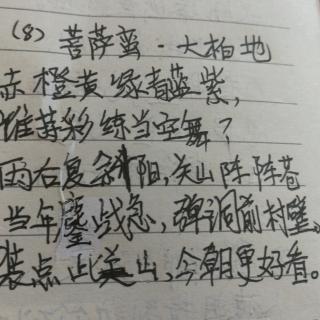 (8) 菩萨蛮·大柏地
赤橙黄绿青蓝紫,
谁持彩练当空舞?
雨后复斜阳,关山阵阵苍
当年鏖战急,弹洞前村壁。
装点此关山,今朝更好看。